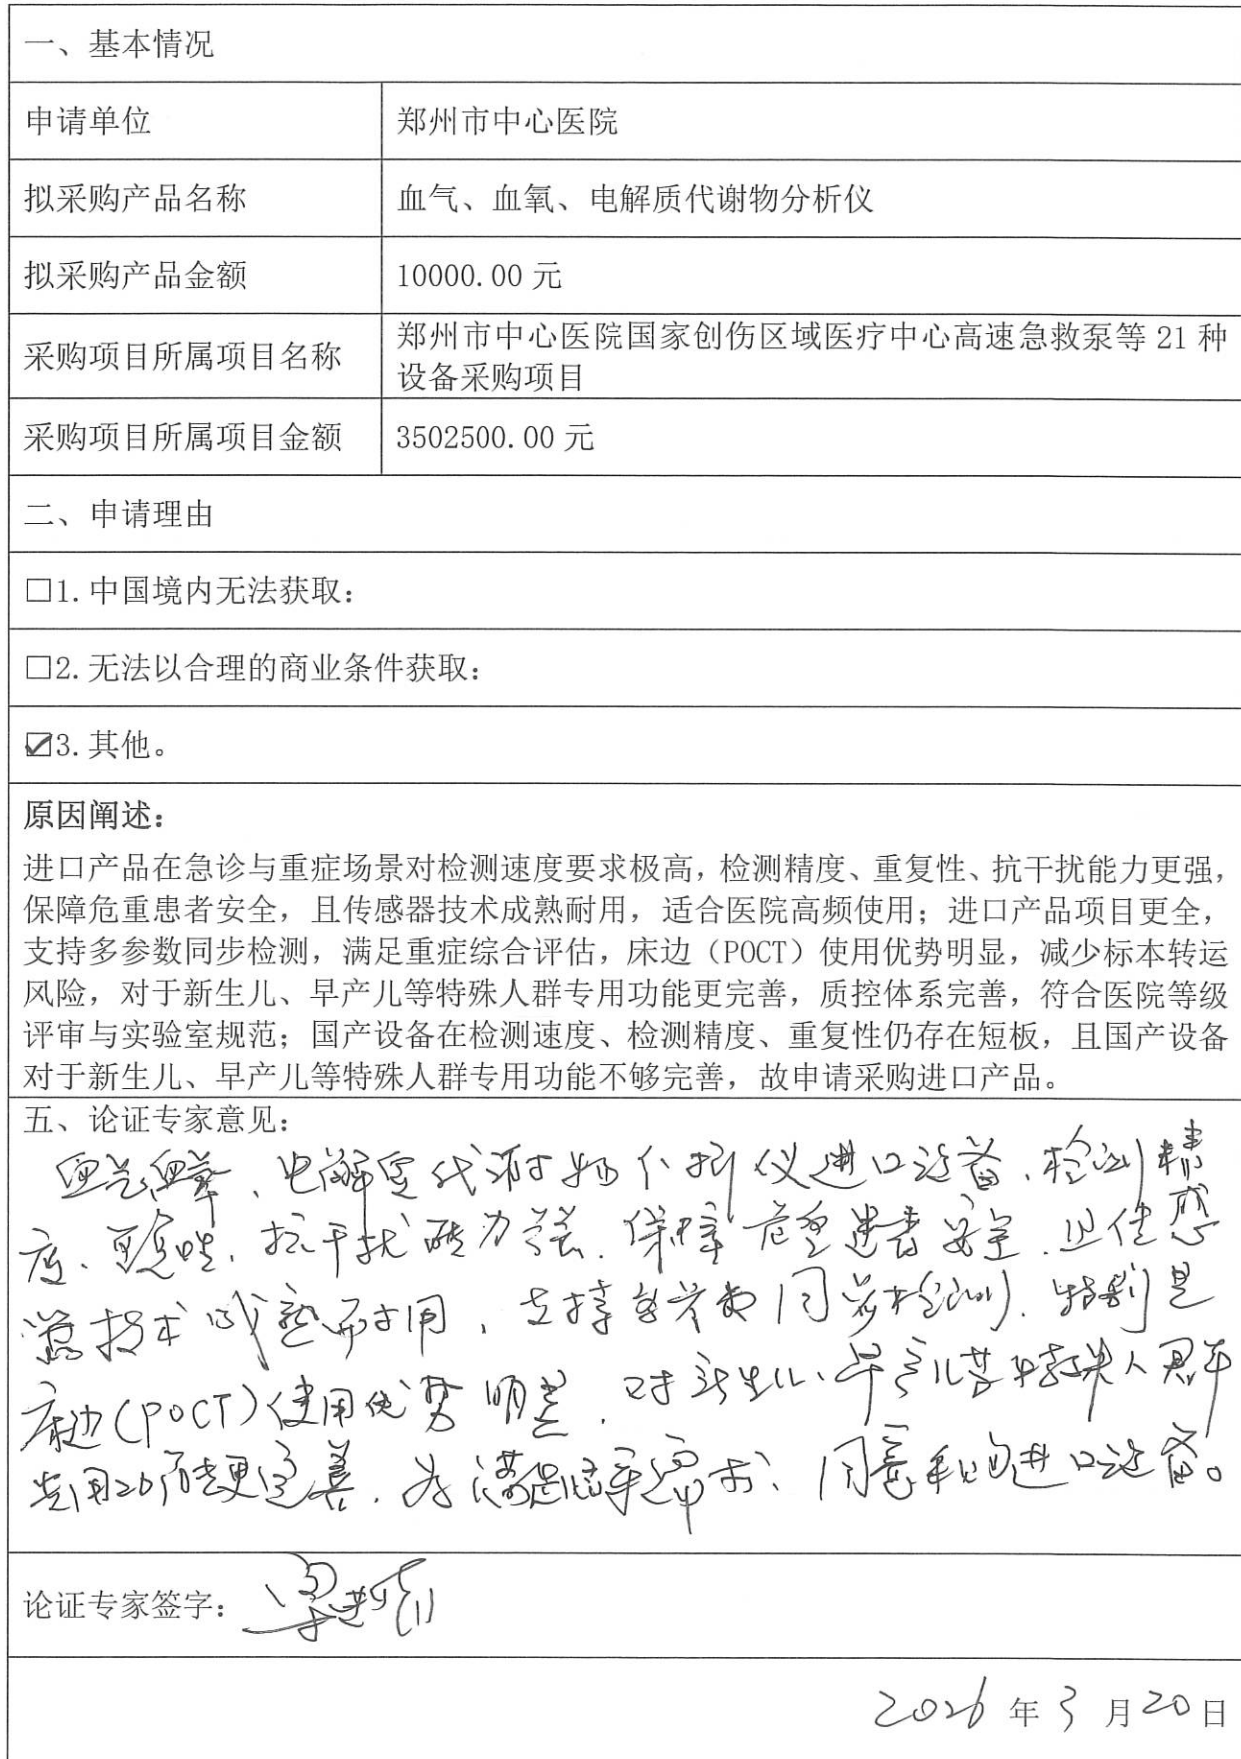 一、基本情况
申请单位
郑州市中心医院
拟采购产品名称
血气、血氧、电解质代谢物分析仪
拟采购产品金额
10000.00 元
采购项目所属项目名称
郑州市中心医院国家创伤区域医疗中心高速急救泵等 21 种
设备采购项目
采购项目所属项目金额
3502500.00 元
二、申请理由
□1.中国境内无法获取：
□2.无法以合理的商业条件获取：
☑3.其他。
原因阐述：
进口产品在急诊与重症场景对检测速度要求极高，检测精度、重复性、抗干扰能力更强，
保障危重患者安全，且传感器技术成熟耐用，适合医院高频使用；进口产品项目更全，
支持多参数同步检测，满足重症综合评估，床边（POCT）使用优势明显，减少标本转运
风险，对于新生儿、早产儿等特殊人群专用功能更完善，质控体系完善，符合医院等级
评审与实验室规范；国产设备在检测速度、检测精度、重复性仍存在短板，且国产设备
对于新生儿、早产儿等特殊人群专用功能不够完善，故申请采购进口产品。
五、论证专家意见：
血气血氧、电解质代谢物分析仪进口设备，检测精
度、重复性、抗干扰能力强，保障危重患者安全，且传感
器技术成熟耐用，支持多参数同步检测，特别是
床边(POCT)使用优势明显，对新生儿、早产儿等特殊人群
专用功能更完善，为满足临床需求，同意采购进口设备。
论证专家签字：
2026 年 3 月 20 日